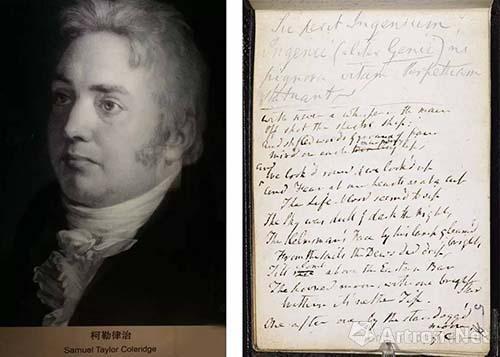 柯勒律治
Samuel Taylor Coleridge
Ingenium
Ingenii (alias Genii) ni
pignora vitam Perpetuam
statuant
with never a whisper the main
Off shot the spectre ship:
And stifled words & groans of pain
mix'd on each
And
We look'd round & we look'd up
And Fear at our hearts as at a Cup
The Life-blood seem'd to sip
The Sky was dull & dark the Night,
The Helmsman's Face by his lamp gleam'd bright,
From the Sails the Dews did drip
Till clomb above the Eastern Bar
The horned moon, with one bright Star
Within its nether Tip.
One after one by the star-dogg'd moon
Artron.Net